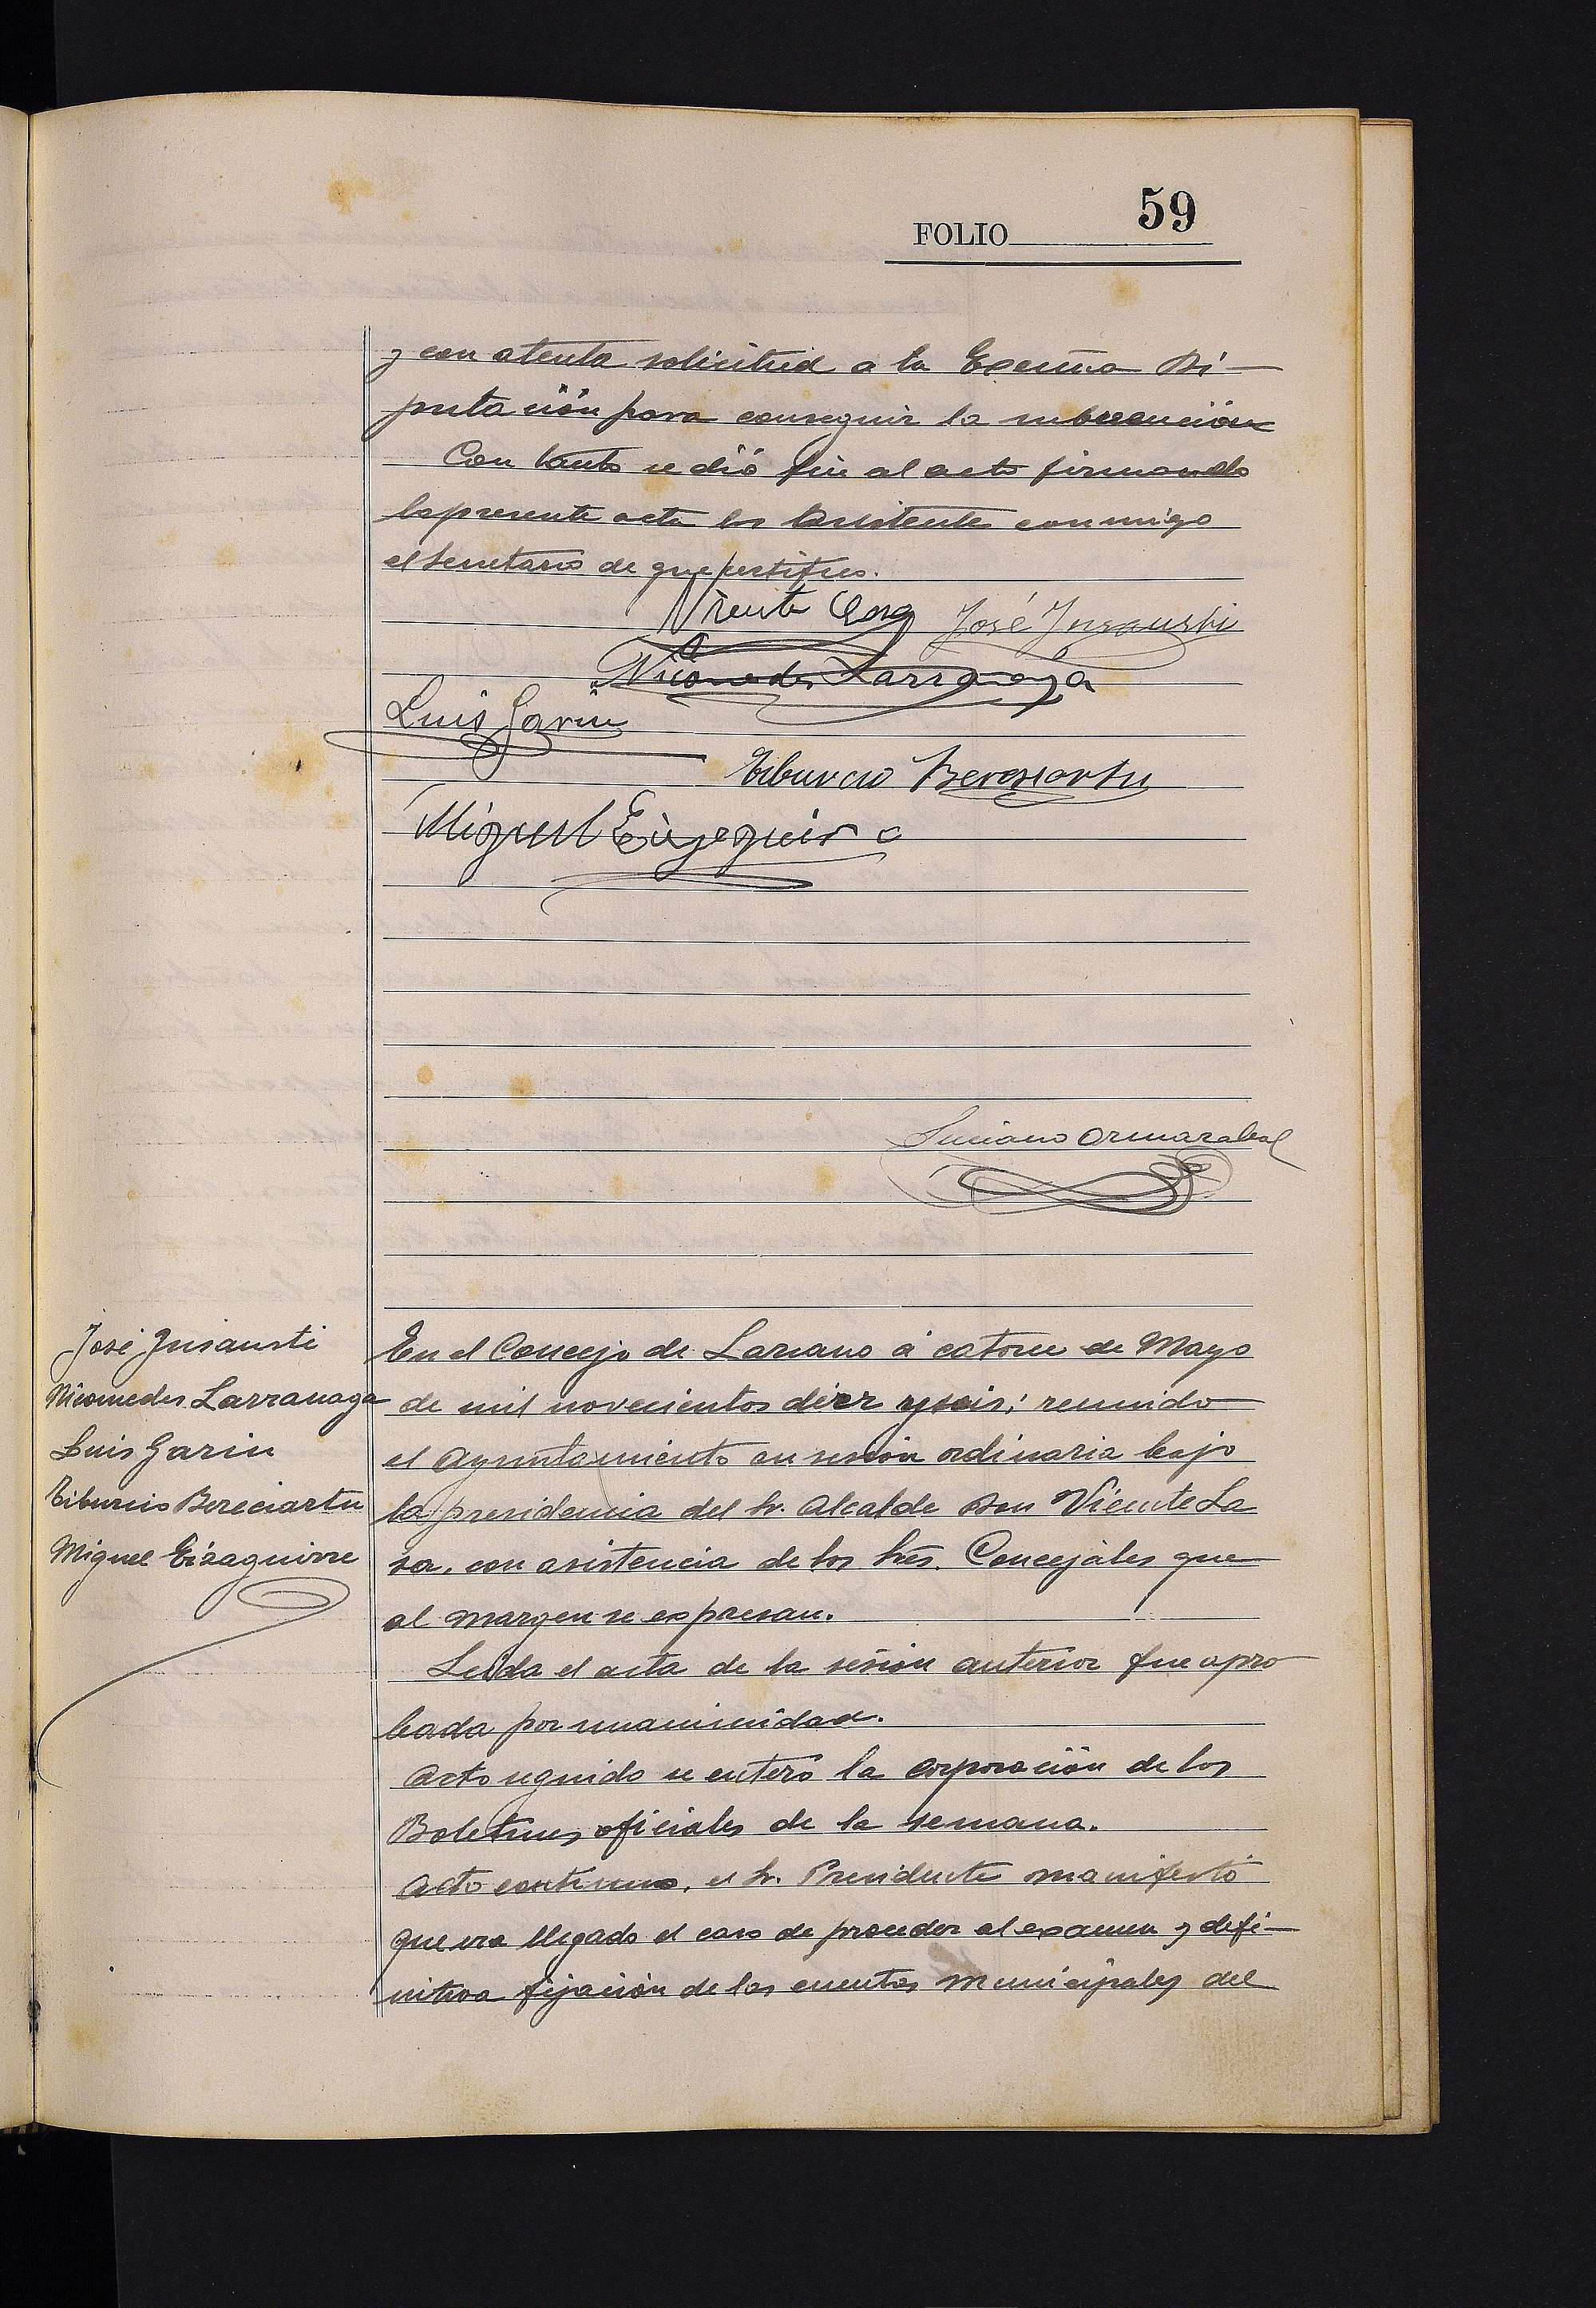 FOLIO 59
y con atenta solicitud a la Excma Di-
putación para conseguir la subvención
Con tanto se dió fin al acto firmando
la presente acta los asistentes conmigo
el Secretario de que certifico.
Vicente Lasa José Insausti
Nicomedes Larrañaga
Luis Garin
Tiburcio Bereciartu
Miguel Eizaguirre
Luciano Ormazabal
José Insausti
Nicomedes Larranaga
Luis Garin
Tiburcio Bereciartu
Miguel Eizaguirre
En el Concejo de Lazcano á catorce de Mayo
de mil novecientos diez y seis; reunido
el Ayuntamiento en sesión ordinaria bajo
la presidencia del Sr. Alcalde Don Vicente La
sa, con asistencia de los Sres. Concejales que
al margen se expresan.
Leida el acta de la sesión anterior fue apro
bada por unanimidad.
Acto seguido se enteró la Corporación de los
Boletines oficiales de la semana.
Acto continuo, el Sr. Presidente manifestó
que era llegado el caso de proceder al examen y defi-
nitiva fijación de las cuentas municipales del